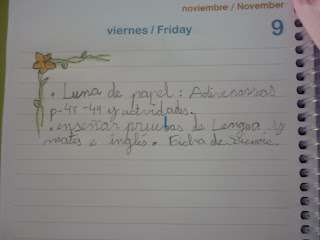 noviembre / November
viernes / Friday
9
. Luna de papel: Adivenansas
p-45-49 y actividades.
. enseñar pruebas de Lengua y
mates e inglés. Ficha de